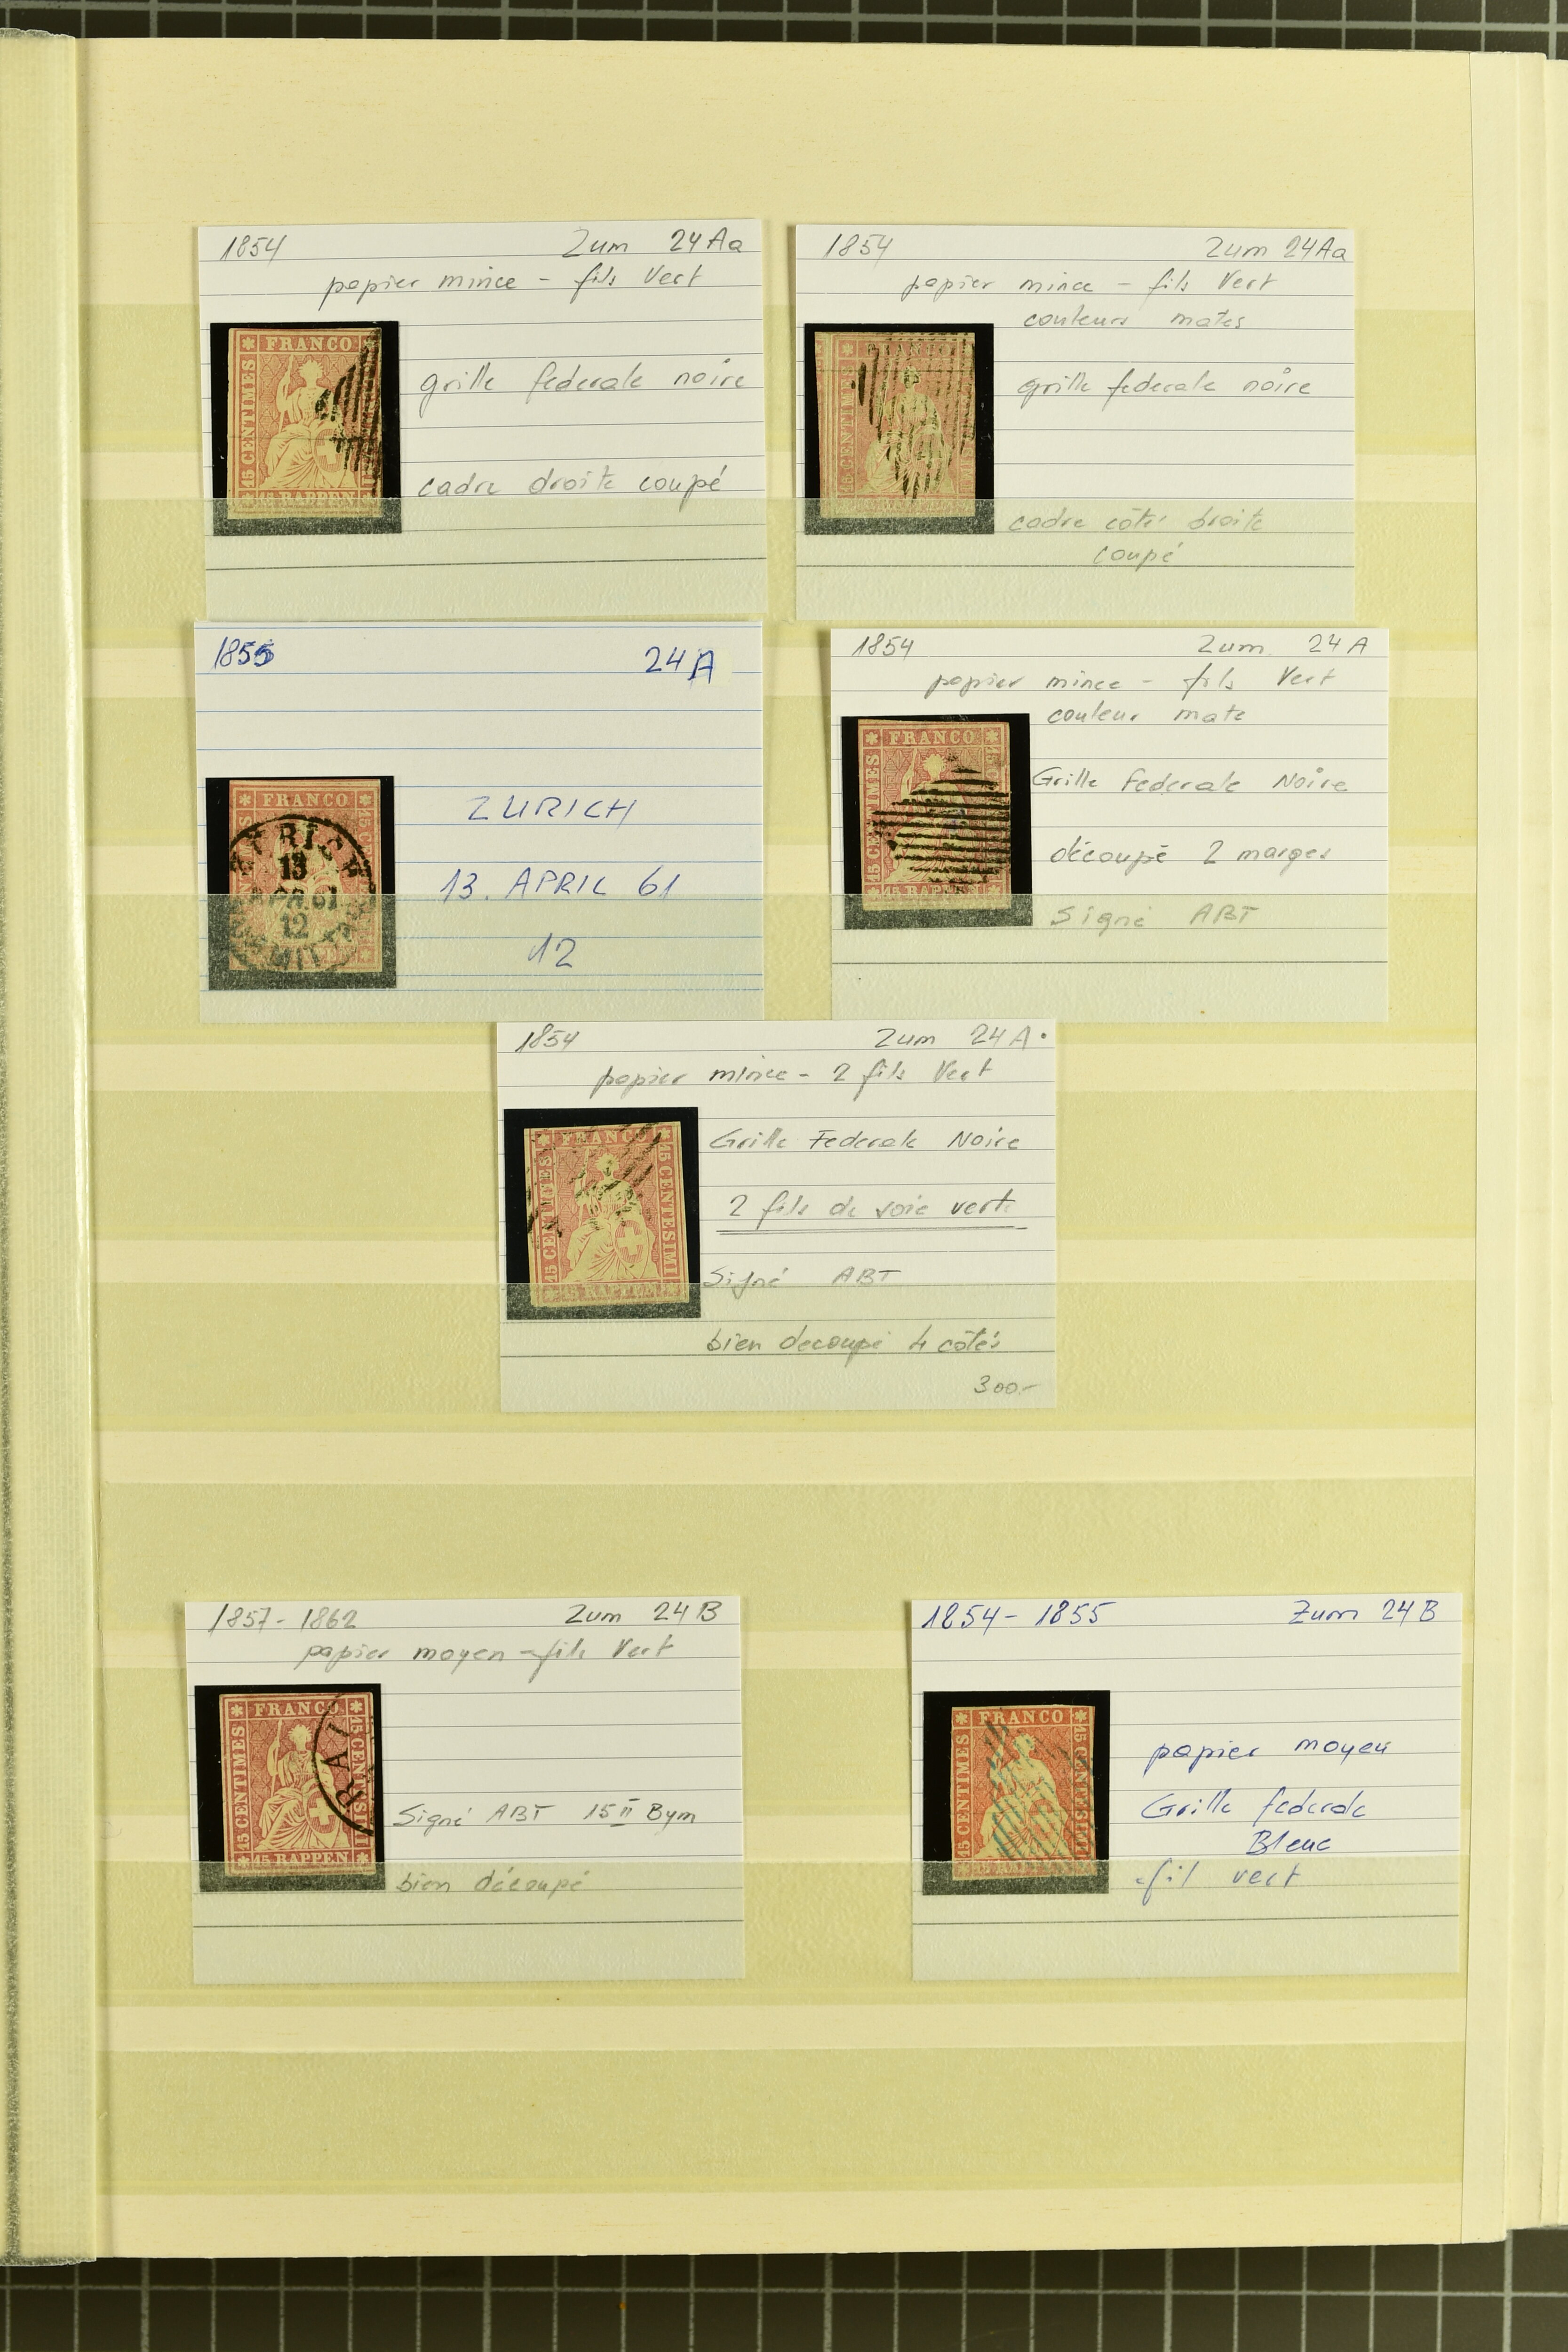 1854 Zum 24Aa
papier mince - fils Vert
FRANCO
15 CENTIMES
15 RAPPEN
grille federale noire
cadre droite coupé
1854 Zum 24Aa
papier mince - fils Vert
couleurs mates
15 CENTIMES
grille federale noire
cadre côté droite
coupé
1855 24A
FRANCO
13
APR. 61
12
ZURICH
13. APRIL 61
12
1854 Zum 24A
papier mince - fils Vert
couleur mate
FRANCO
15 CENTIMES
15 RAPPEN
Grille Federale Noire
découpé 2 marges
Signé ABT
1854 Zum 24A.
papier mince - 2 fils Vert
FRANCO
15 CENTIMES
15 CENTESIMI
15 RAPPEN
Grille Federale Noire
2 fils de soie verte
Signé ABT
bien decoupé 4 côtés
300.-
1857 - 1862 Zum 24B
papier moyen - fils Vert
FRANCO
15 CENTIMES
15 CENTESIMI
15 RAPPEN
RAI
Signé ABT 15 II Bym
bien découpé
1854 - 1855 Zum 24B
FRANCO
15 CENTIMES
15 CENTESIMI
papier moyen
Grille federale
Bleue
fil vert